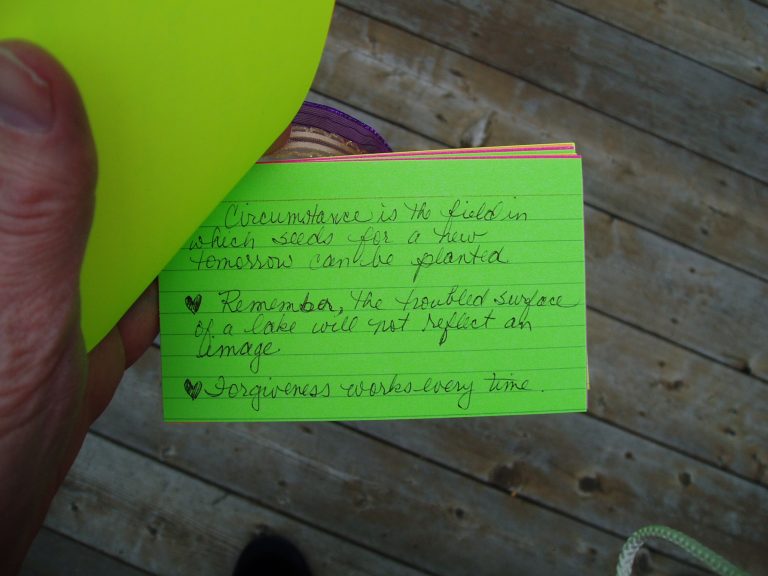 Circumstance is the field in
which seeds for a new
tomorrow can be planted
♥ Remember, the troubled surface
of a lake will not reflect an
image.
♥ Forgiveness works every time.